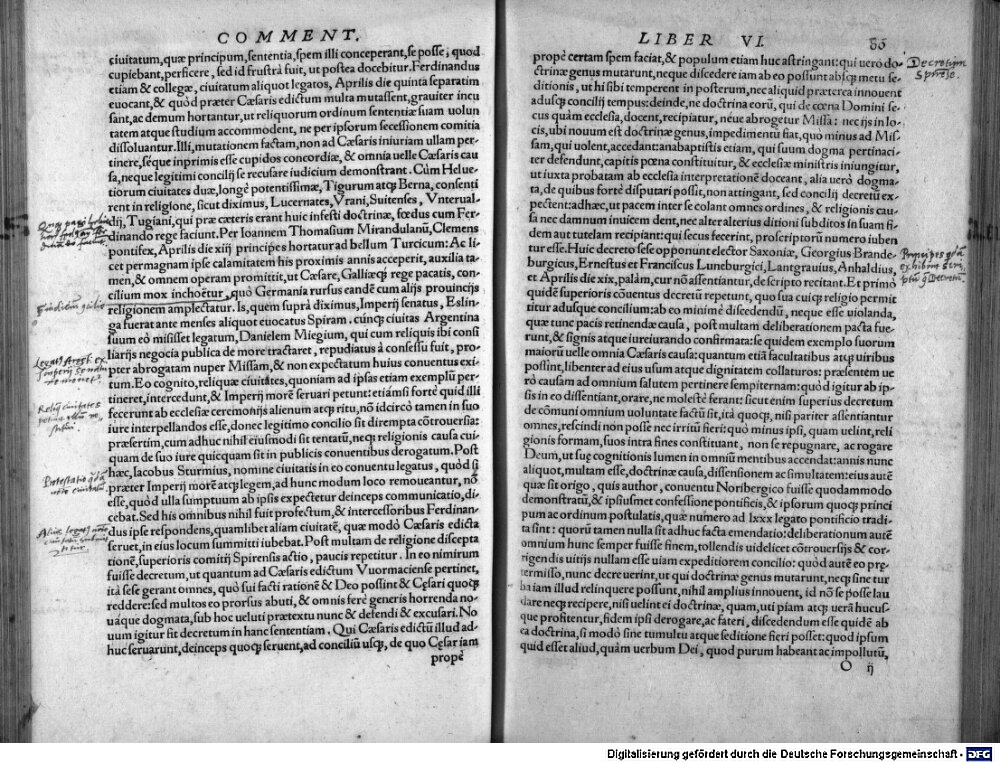 COMMENT.
ciuitatum, quæ principum, sententia, spem illi conceperant, se posse, quod
cupiebant, perficere, sed id frustrà fuit, ut postea docebitur. Ferdinandus
etiam & collegæ, ciuitatum aliquot legatos, Aprilis die quinta separatim
euocant, & quòd præter Cæsaris edictum multa mutassent, grauiter incu
sant, ac demum hortantur, ut reliquorum ordinum sententiæ suam uolun
tatem atque studium accommodent, ne per ipsorum secessionem comitia
dissoluantur. Illi, mutationem factam, non ad Cæsaris iniuriam ullam per-
tinere, séque inprimis esse cupidos concordiæ, & omnia uelle Cæsaris cau
sa, neque legitimi concilij se recusare iudicium demonstrant. Cùm Helue-
tiorum ciuitates duæ, longè potentissimæ, Tigurum atqꝫ Berna, consenti
rent in religione, sicut diximus, Lucernates, Vrani, Suitenses, Vnterual-
dij, Tugiani, qui præ cæteris erant huic infesti doctrinæ, fœdus cum Fer-
dinando rege faciunt. Per Ioannem Thomasium Mirandulanũ, Clemens
pontifex, Aprilis die xiij principes hortatur ad bellum Turcicum: Ac li-
cet permagnam ipse calamitatem his proximis annis acceperit, auxilia ta-
men, & omnem operam promittit, ut Cæsare, Galliæqꝫ rege pacatis, con-
cilium mox inchoẽtur, quò Germania rursus eandẽ cum alijs prouincijs
religionem amplectatur. Is, quem suprà diximus, Imperij senatus, Eslin-
ga fuerat ante menses aliquot euocatus Spiram. cúnqꝫ ciuitas Argentina
suum eò misisset legatum, Danielem Miegium, qui cum reliquis ibi consi
liarijs negocia publica de more tractaret, repudiatus à consessu fuit, pro-
pter abrogatam nuper Missam, & non expectatum huius conuentus exi-
tum. Eo cognito, reliquæ ciuitates, quoniam ad ipsas etiam exemplũ per-
tineret, intercedunt, & Imperij morẽ seruari petunt: etiámsi fortè quid illi
fecerunt ab ecclesiæ ceremonijs alienum atqꝫ ritu, nõ idcircò tamen in suo
iure interpellandos esse, donec legitimo concilio sit dirempta cõtrouersia:
præsertim, cum adhuc nihil eiusmodi sit tentatũ, neqꝫ religionis causa cui-
quam de suo iure quicquam sit in publicis conuentibus derogatum. Post
hæc, Iacobus Sturmius, nomine ciuitatis in eo conuentu legatus, quòd si
præter Imperij morẽ atqꝫ legem, ad hunc modum loco remoueantur, nõ
esse, quòd ulla sumptuum ab ipsis expectetur deinceps communicatio, di-
cebat. Sed his omnibus nihil fuit profectum, & intercessoribus Ferdinan-
dus ipse respondens, quamlibet aliam ciuitatẽ, quæ modò Cæsaris edicta
seruet, in eius locum summitti iubebat. Post multam de religione discepta
tionẽ, superioris comitij Spirensis actio, paucis repetitur. In eo nimirum
fuisse decretum, ut quantum ad Cæsaris edictum Vuormaciense pertinet,
ità sese gerant omnes, quò sui facti rationẽ & Deo possint & Cęsari quoqꝫ
reddere: sed multos eo prorsus abuti, & omnis ferè generis horrenda no-
uáque dogmata, sub hoc ueluti prætextu nunc & defendi & excusari. No
uum igitur sit decretum in hanc sententiam. Qui Cæsaris edictũ illud ad-
huc seruarunt, deinceps quoqꝫ seruent, ad conciliũ usqꝫ, de quo Cęsar iam
propè
LIBER VI. 86
propè certam spem faciat, & populum etiam huc astringant: qui uerò do-
ctrinæ genus mutarunt, neque discedere iam ab eo possunt absqꝫ metu se-
ditionis, ut hi sibi temperent in posterum, nec aliquid præterea innouent
adusqꝫ concilij tempus: deinde, ne doctrina eorũ, qui de cœna Domini se-
cus quàm ecclesia, docent, recipiatur, néue abrogetur Missa: nec ijs in lo-
cis, ubi nouum est doctrinæ genus, impedimentũ fiat, quò minus ad Mis-
sam, qui uolent, accedant: anabaptistis etiam, qui suum dogma pertinaci-
ter defendunt, capitis pœna constituitur, & ecclesiæ ministris iniungitur,
ut iuxta probatam ab ecclesia interpretationẽ doceant, alia uerò dogma-
ta, de quibus fortè disputari possit, non attingant, sed concilij decretũ ex-
pectent: adhæc, ut pacem inter se colant omnes ordines, & religionis cau-
sa nec damnum inuicem dent, nec alter alterius ditioni subditos in suam fi-
dem aut tutelam recipiant: qui secus fecerint, proscriptorũ numero iuben
tur esse. Huic decreto sese opponunt elector Saxoniæ, Georgius Brande-
burgicus, Ernestus et Franciscus Luneburgici, Lantgrauius, Anhaldius,
et Aprilis die xix, palàm, cur nõ assentiantur, de scripto recitant. Et primò
quidẽ superioris cõuentus decretũ repetunt, quo sua cuiqꝫ religio permit
titur adusque concilium: ab eo minimè discedendũ, neque esse uiolanda,
quæ tunc pacis retinendæ causa, post multam deliberationem pacta fue-
runt, & signis atque iureiurando confirmata: se quidem exemplo suorum
maiorũ uelle omnia Cæsaris causa: quantum etiã facultatibus atqꝫ uiribus
possint, libenter ad eius usum atque dignitatem collaturos: præsentẽm ue
rò causam ad omnium salutem pertinere sempiternam: quòd igitur ab ip-
sis in eo dissentiant, orare, ne molestè ferant: sicut enim superius decretum
de cõmuni omnium uoluntate factũ sit, ità quoqꝫ, nisi pariter assentiantur
omnes, rescindi non posse nec irritũ fieri: quò minus ipsi, quam uelint, reli
gionis formam, suos intra fines constituant, non se repugnare, ac rogare
Deum, ut suę cognitionis lumen in omniũ mentibus accendat: annis nunc
aliquot, multam esse, doctrinæ causa, dissensionem ac simultatem: eius autẽ
quæ sit origo, quis author, conuentu Noribergico fuisse quodammodo
demonstratũ, & ipsiusmet confessione pontificis, & ipsorum quoqꝫ princi
pum ac ordinum postulatis, quæ numero ad lxxx legato pontificio tradi-
ta sint: quorũ tamen nulla sit adhuc facta emendatio: deliberationum autẽ
omnium hunc semper fuisse finem, tollendis uidelicet cõtrouersijs & cor-
rigendis uitijs nullam esse uiam expeditiorem concilio: quòd autẽ eo prę-
termisso, nunc decreuerint, ut qui doctrinæ genus mutarunt, neqꝫ sine tur
ba iam illud relinquere possunt, nihil amplius innouent, id nõ se posse lau
dare neqꝫ recipere, nisi uelint ei doctrinæ, quam, uti piam atqꝫ uerã hucus-
que profitentur, fidem ipsi derogare, ac fateri, discedendum esse quidẽ ab
ea doctrina, si modò sine tumultu atque seditione fieri posset: quod ipsum
quid esset aliud, quàm uerbum Dei, quod purum habeant ac impollutũ,
O ij
Decretum
Spirẽse.
Digitalisierung gefördert durch die Deutsche Forschungsgemeinschaft - DFG